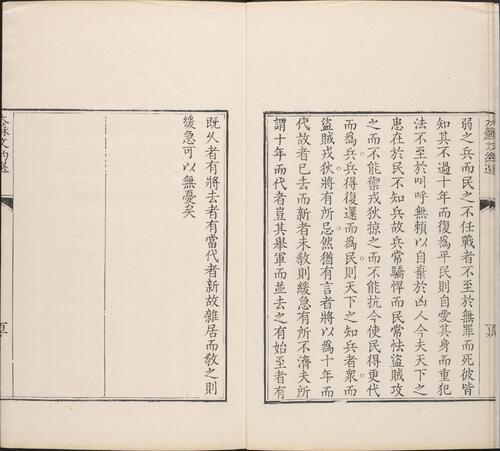 弱之兵而民之不任戰者不至於無罪而死彼皆
知其不過十年而復為平民則自愛其身而重犯
法不至於叫呼無賴以自棄於凶人今夫天下之
患在於民不知兵故兵常驕悍而民常怯盜賊攻
之而不能禦戎狄掠之而不能抗今使民得更代
而為兵兵得復還而為民則天下之知兵者衆而
盜賊戎狄將有所忌然猶有言者將以為十年而
代故者已去而新者未教則緩急有所不濟夫所
謂十年而代者豈其舉軍而並去之有始至者有
既久者有將去者有當代者新故雜居而教之則
緩急可以無憂矣